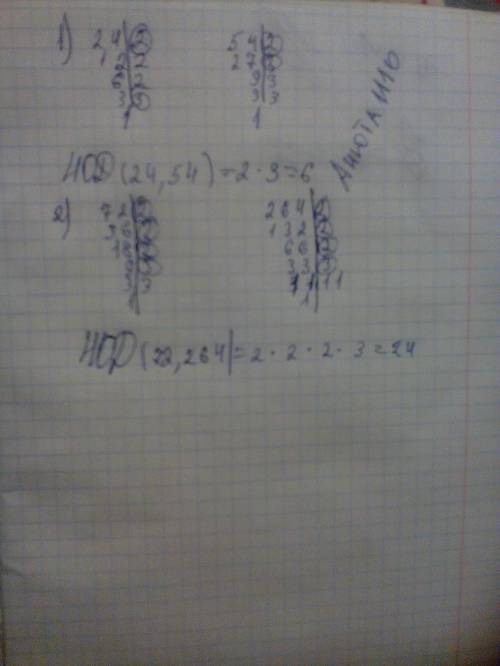 1) 24|2 54|2
12|2 27|3
6|2 9|3
3|3 3|3
1 1
НОД (24,54) = 2 · 3 = 6
2) 72|2 264|2
36|2 132|2
18|2 66|2
9|3 33|3
3|3 11|11
1 1
НОД (72,264) = 2 · 2 · 2 · 3 = 24